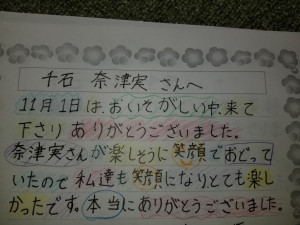 千石 奈津実 さんへ
11月1日は、おいそがしい中、来て
下さり ありがとうございました。
奈津実さんが楽しそうに笑顔でおどって
いたので私達も笑顔になりとても楽し
かったです。本当にありがとうございました。